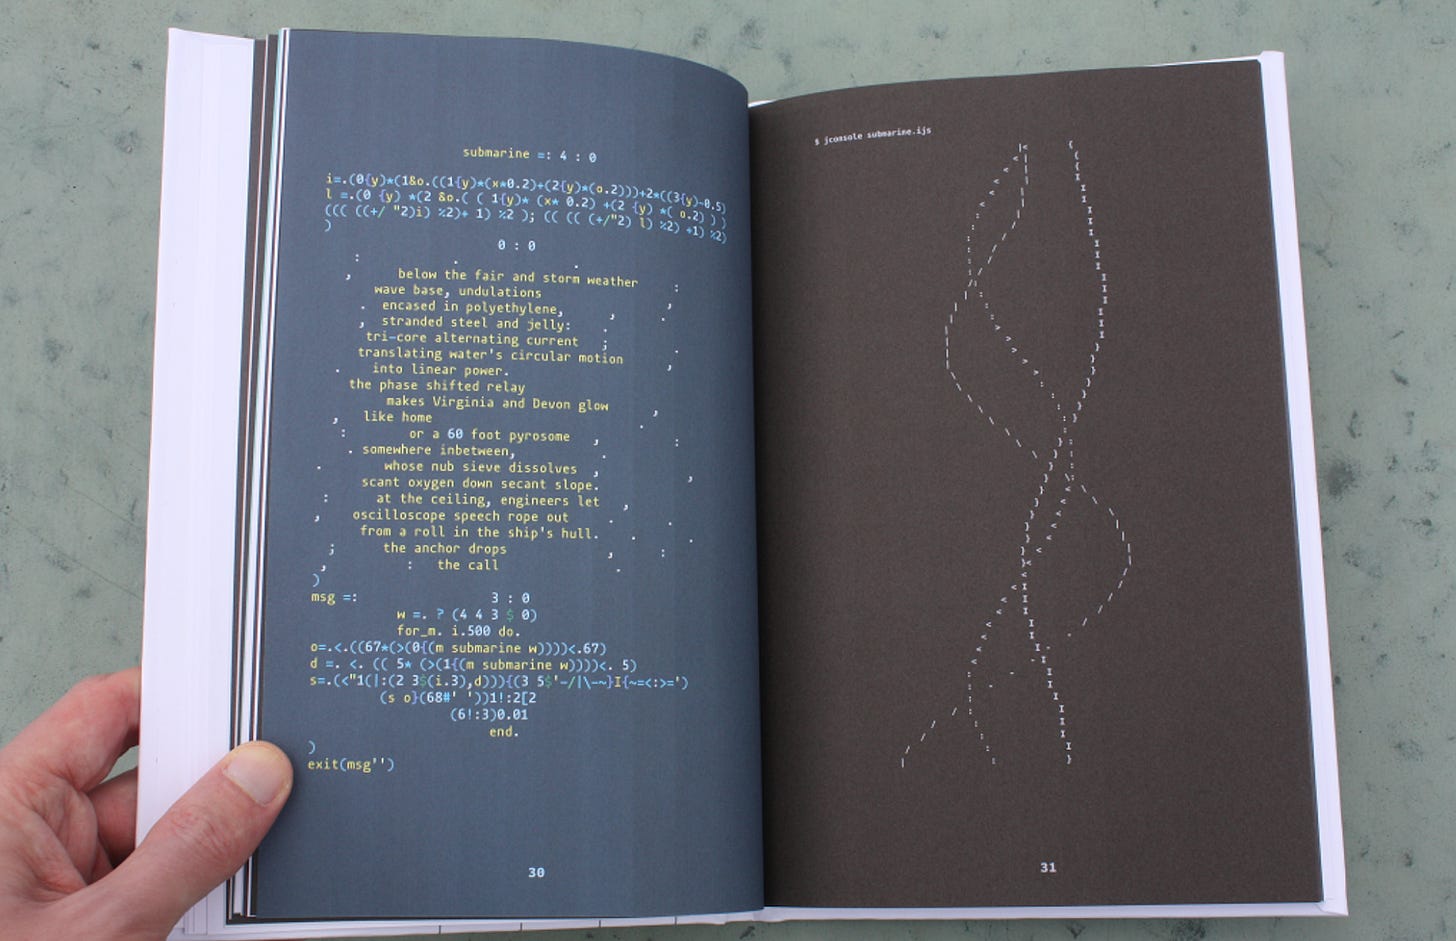 submarine =: 4 : 0
i=.(0{y)*(1&o.((1{y)*(x*0.2)+(2{y)*(o.2)))+2*((3{y)-0.5)
l =.(0 {y) *(2 &o.( ( 1{y)* (x* 0.2) +(2 {y) *( o.2) ) )
((( ((+/ "2)i) %2)+ 1) %2 ); (( (( (+/"2) l) %2) +1) %2)
)
0 : 0
below the fair and storm weather
wave base, undulations
encased in polyethylene,
stranded steel and jelly:
tri-core alternating current
translating water's circular motion
into linear power.
the phase shifted relay
makes Virginia and Devon glow
like home
or a 60 foot pyrosome
somewhere inbetween,
whose nub sieve dissolves
scant oxygen down secant slope.
at the ceiling, engineers let
oscilloscope speech rope out
from a roll in the ship's hull.
the anchor drops
: the call
)
msg =: 3 : 0
w =. ? (4 4 3 $ 0)
for_m. i.500 do.
o=.<.((67*(>(0{(m submarine w))))<.67)
d =. <. (( 5* (>(1{(m submarine w))))<. 5)
s=.(<"1(|:(2 3$(i.3),d))){(3 5$'-/|\-~}I{~=<:>=')
(s o}(68#' '))1!:2[2
(6!:3)0.01
end.
)
exit(msg'')
30
$ jconsole submarine.ijs
31